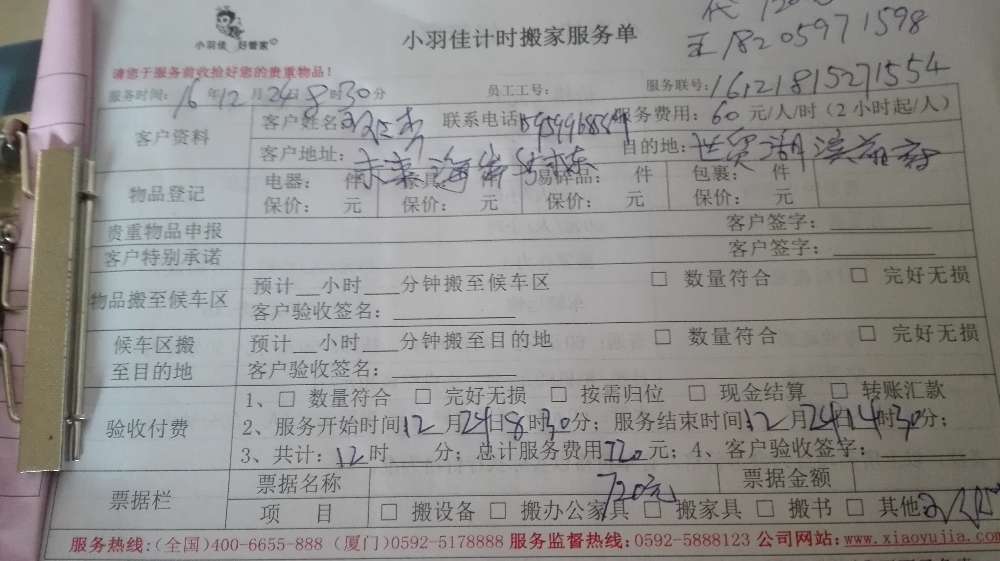 小羽佳 好管家
小羽佳计时搬家服务单
18205971598
请您于服务前收拾好您的贵重物品!
服务时间: 16 年 12 月 24 日 8 时 30 分 员工工号: 服务联号: 16121815271554
客户资料 客户姓名: 联系电话: 服务费用: 60 元/人/时 (2 小时起/人)
客户地址: 未来海岸 目的地: 世贸湖滨
物品登记 电器: 件 家具: 件 易碎品: 件 包裹: 件
保价: 元 保价: 元 保价: 元 保价: 元
贵重物品申报 客户签字:
客户特别承诺 客户签字:
物品搬至候车区 预计__小时___分钟搬至候车区 □ 数量符合 □ 完好无损
客户验收签名:
候车区搬至目的地 预计__小时___分钟搬至目的地 □ 数量符合 □ 完好无损
客户验收签名:
验收付费 1、□ 数量符合 □ 完好无损 □ 按需归位 □ 现金结算 □ 转账汇款
2、服务开始时间 12 月 24 日 8 时 30 分; 服务结束时间 12 月 24 日 14 时 30 分;
3、共计: 12 时 分; 总计服务费用 720 元; 4、客户验收签字:
票据栏 票据名称 720元 票据金额
项 目 □ 搬设备 □ 搬办公家具 □ 搬家具 □ 搬书 □ 其他
服务热线:(全国)400-6655-888 (厦门)0592-5178888 服务监督热线:0592-5888123 公司网站:www.xiaoyujia.com